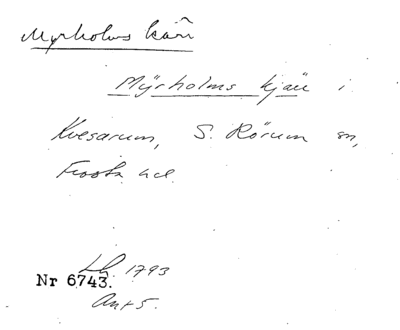 Myrholms kärr
Myrholms kjärr i
Kvesarum, S. Rörum sn,
Frosta hd
Lh 1793
Nr 6743.
Ant 5.